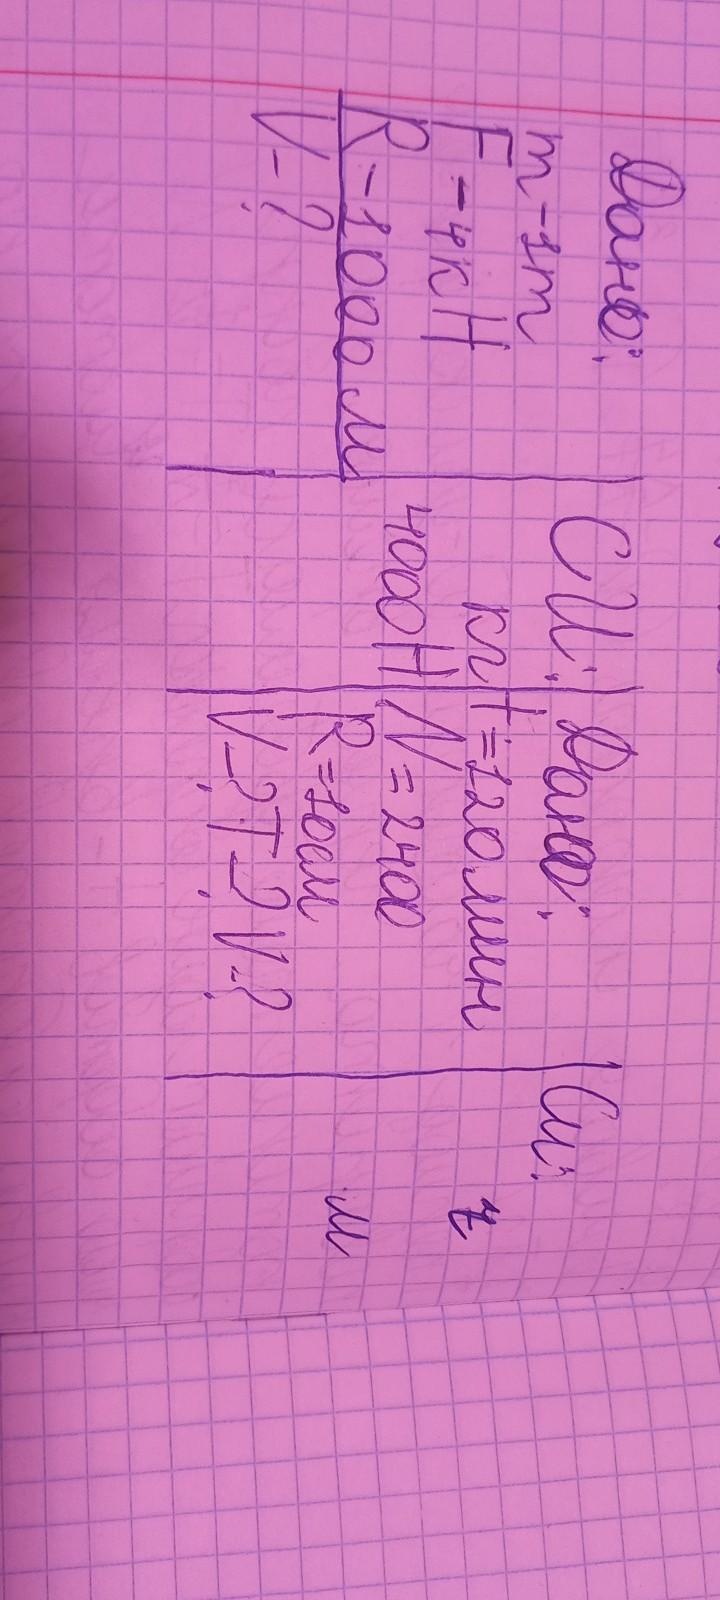 Дано:
m-1т
F-4кН
R-1000м
V-?
СИ:
кг
4000Н
Дано:
t=120мин
N=2400
R=10см
V-? T-? V-?
Си:
м